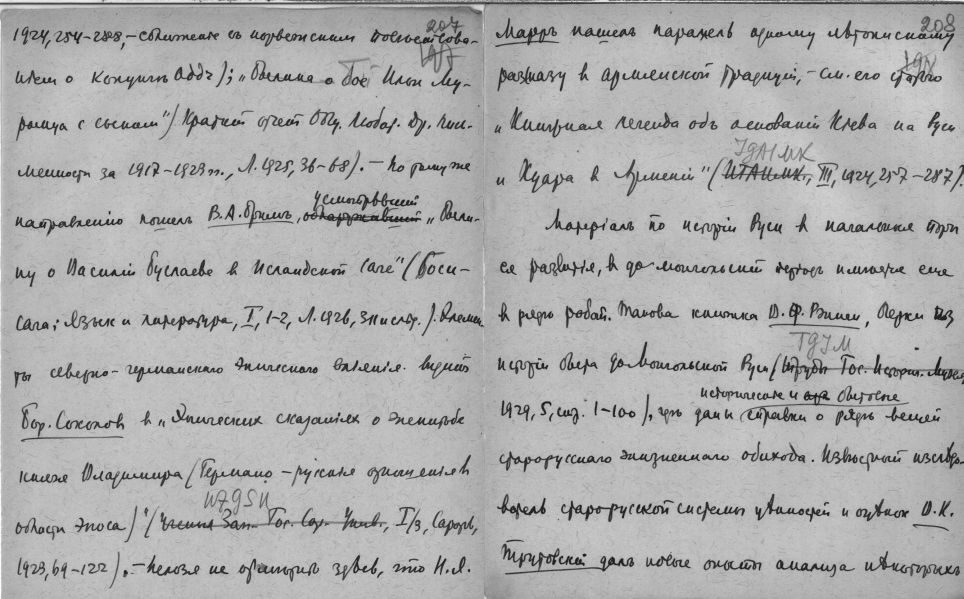 207
197
1924, 254–288, – сближение съ норвежским
о Кокуринъ Оддъ); „Былина о бое Ильи Му-
ромца с сыномъ" (Краткій отчет Общ. Любит. Др. пись-
менности за 1917–1923 гг., Л. 1925, 36–68). – По тому же
направленію пошелъ В. А. Бримъ, усмотрѣвшій обнаружившій „Были-
ну о Василіи Буслаеве в исландской саге" (Боси-
сага; Язык и литература, I, 1–2, Л. 1926, 311 и слѣд.). Элемен-
ты северно-германского эпического вліянія видит
Бор. Соколов в „Эпических сказаніях о женитьбе
князя Владимира (Германо-русскія отношенія в
области эпоса)" (Ученыя Зап. Гос. Сар. Унив., I/3, Саратов,
1923, 69–122). – Нельзя не отмѣтить здѣсь, что Н. Я.
208
198
Марръ нашелъ параллель одному лѣтописному
разсказу в армянской традиціи, – см. его статью
„Книжная легенда об основаніи Кіева на Руси
и Куара в Арменіи" (ИТАИМК, III, 1924, 257–287).
Матеріалъ по исторіи Руси в начальные
ея развитія, в до-монгольскій періодъ имеется еще
в ряде работ. Такова книжка Очерки из
исторіи быта до-монгольской Руси (Труды Гос. Историч. Музея,
историческіе и бытовые
1929, 5, стр. 1–100), гдѣ даны справки о рядѣ вещей
старорусскаго жизненнаго обихода. Извѣстный изслѣдо-
ватель старорусской системы цѣнностей и О. К.
Трутовскій далъ новые опыты анализа нѣкоторыхъ